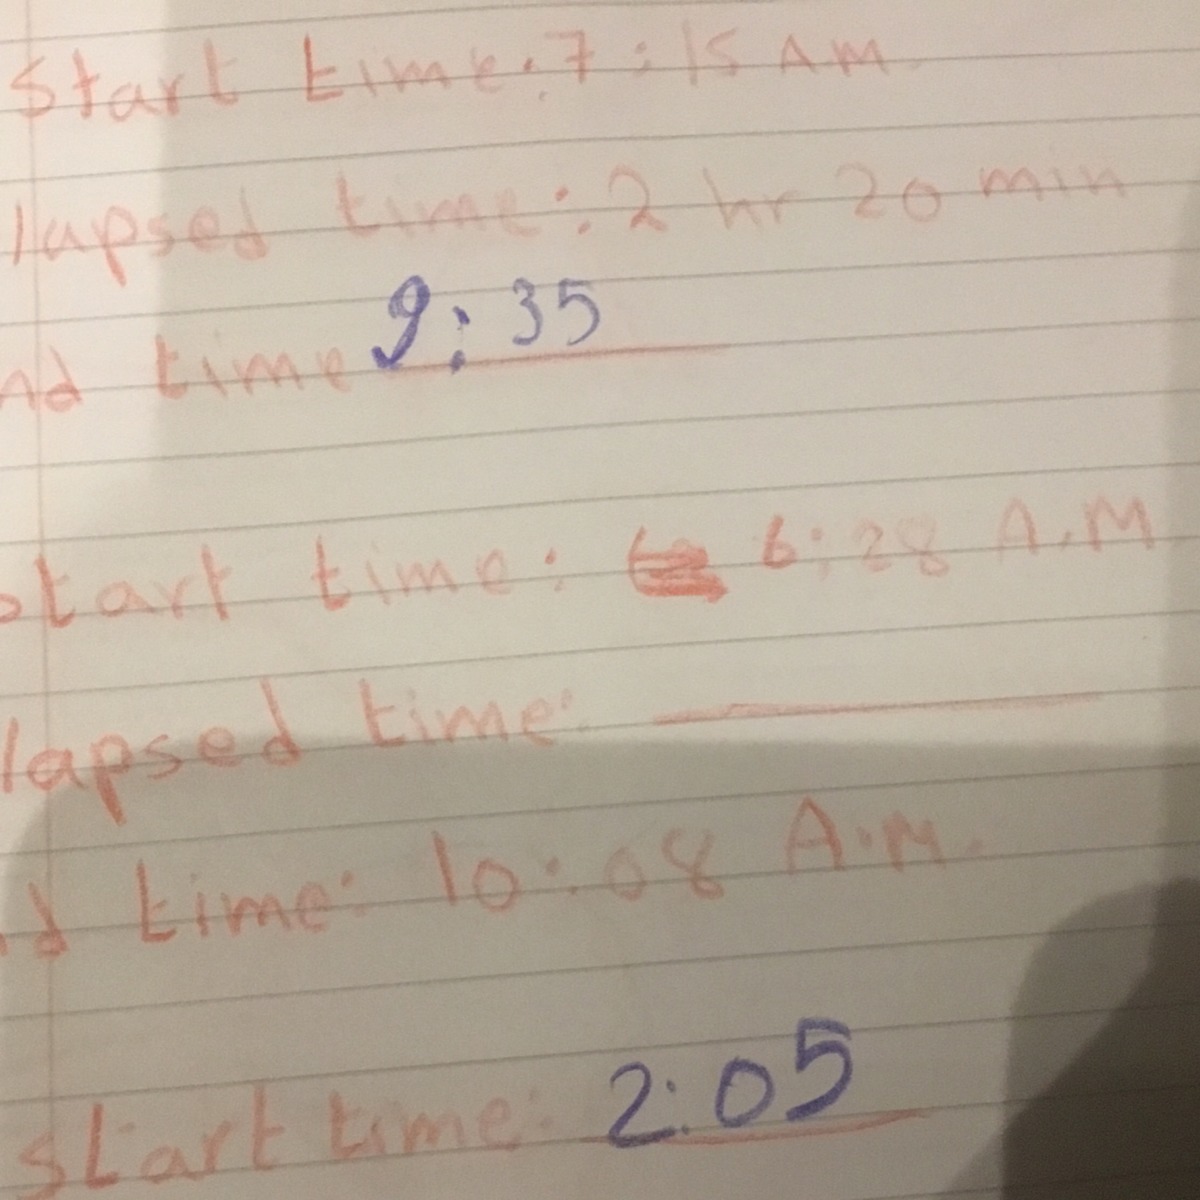 Start time: 7:15 AM
lapsed time: 2 hr 20 min
nd time 9:35
start time: 6:28 A.M
lapsed time:
nd time: 10:08 A.M.
start time: 2:05